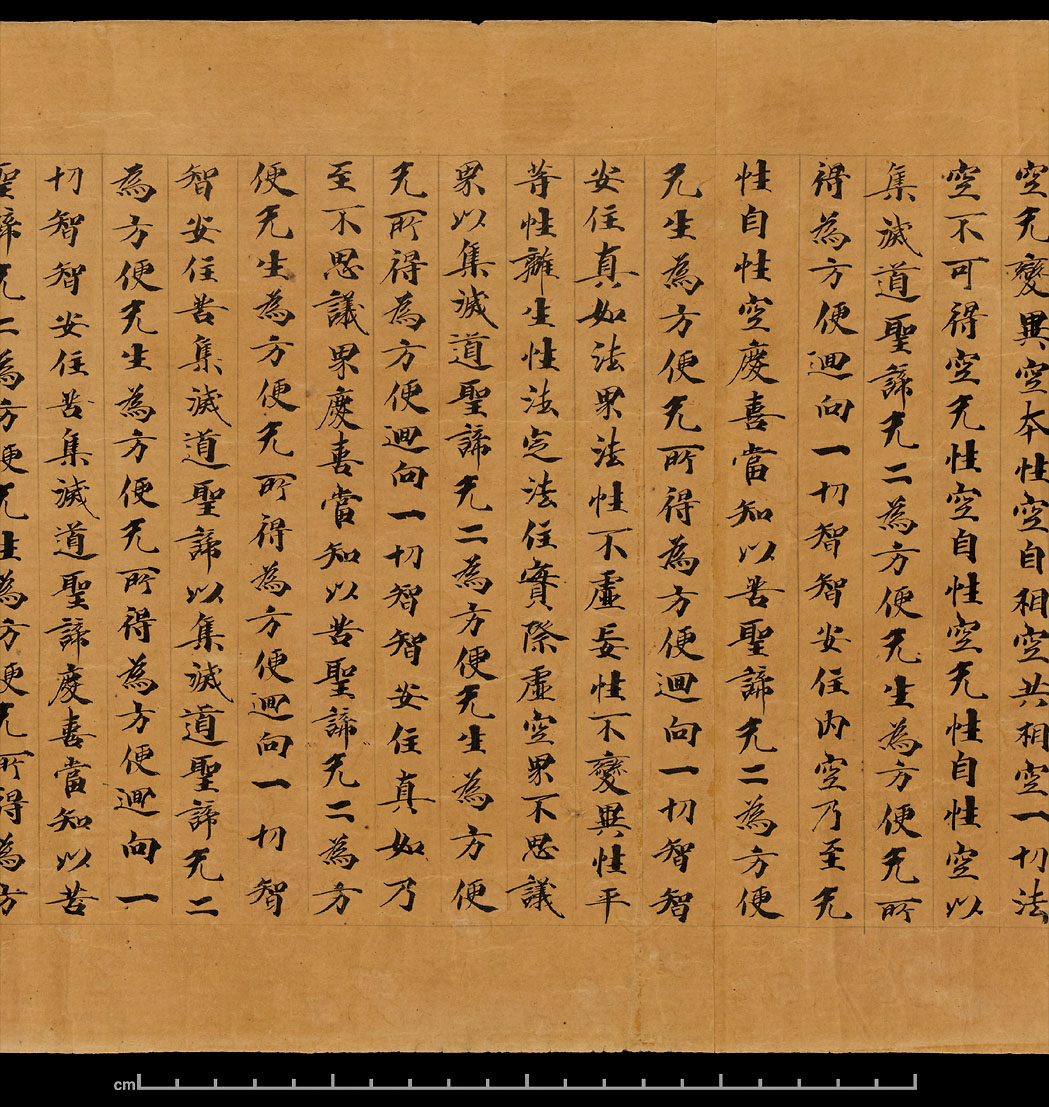 空无變異空本性空自相空共相空一切法
空不可得空无性空自性空无性自性空以
集滅道聖諦无二為方便无生為方便无所
得為方便迴向一切智智安住內空乃至无
性自性空慶喜當知以苦聖諦无二為方便
无生為方便无所得為方便迴向一切智智
安住真如法界法性不虛妄性不變異性平
等性離生性法定法住實際虛空界不思議
界以集滅道聖諦无二為方便无生為方便
无所得為方便迴向一切智智安住真如乃
至不思議界慶喜當知以苦聖諦无二為方
便无生為方便无所得為方便迴向一切智
智安住苦集滅道聖諦以集滅道聖諦无二
為方便无生為方便无所得為方便迴向一
切智智安住苦集滅道聖諦慶喜當知以苦
聖諦无二為方便无生為方便无所得為方
cm